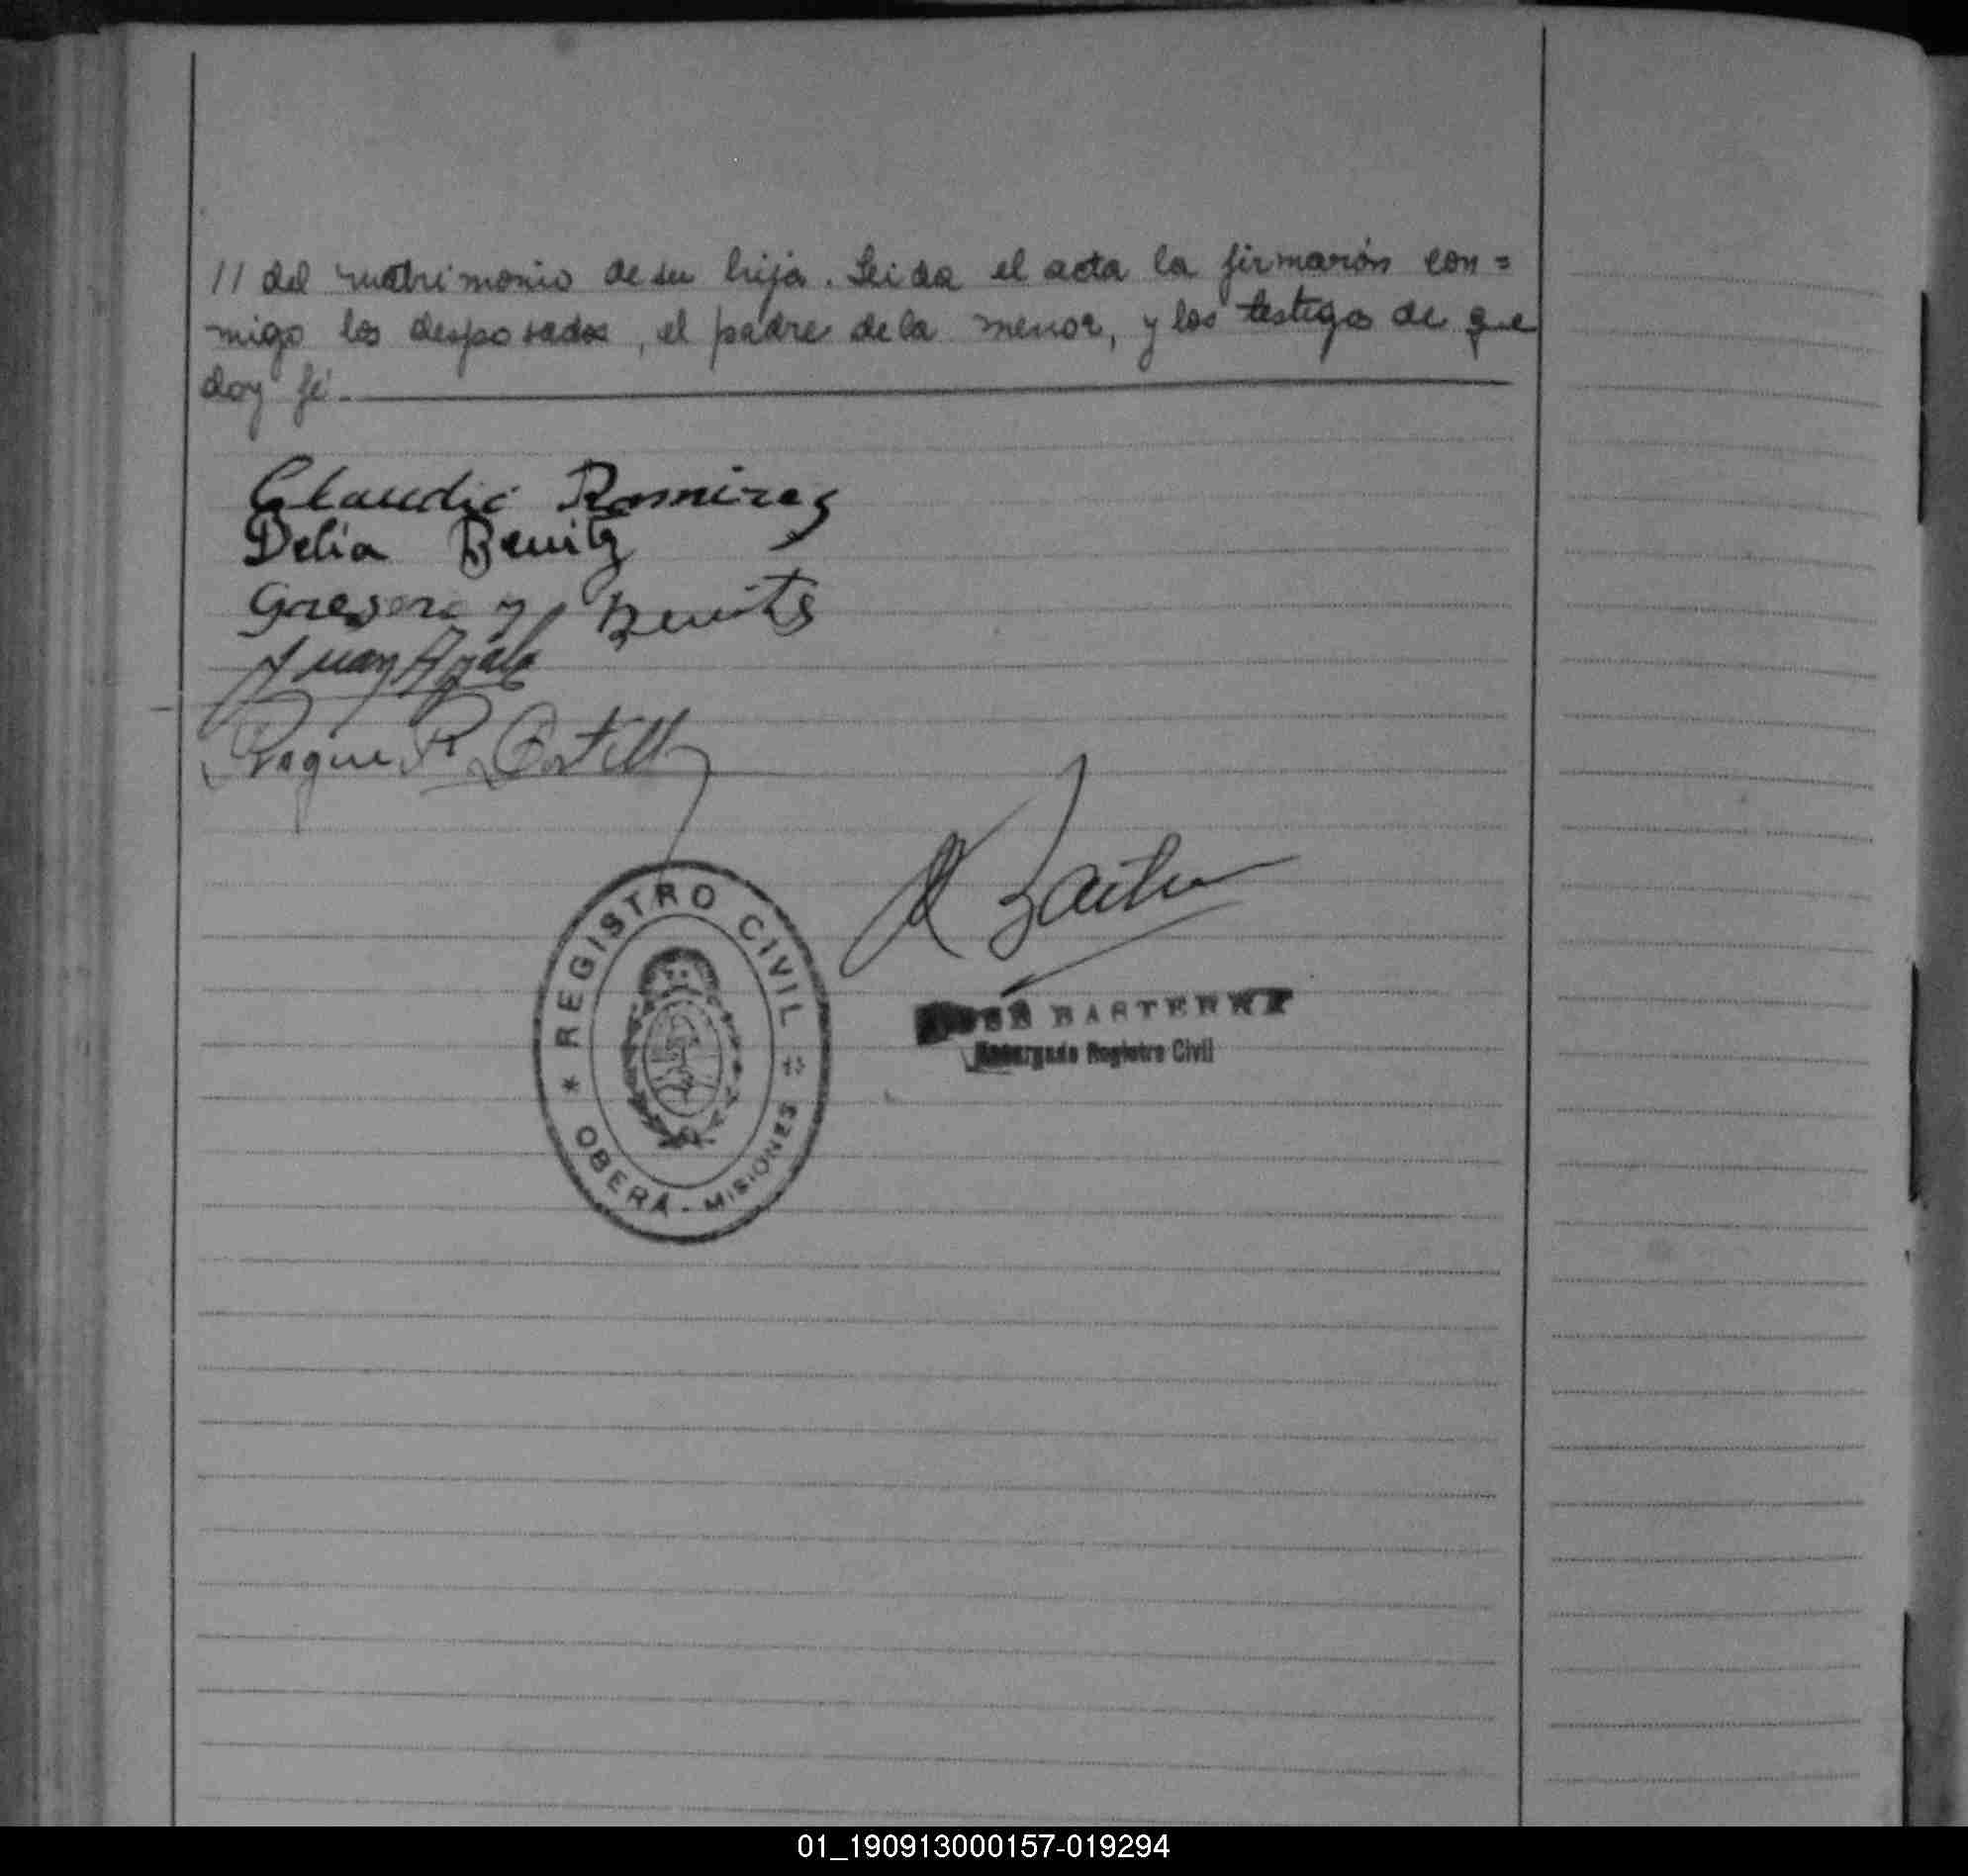 // del matrimonio de su hija. Leida el acta la firmarón con=
migo los desposados, el padre de la menor, y los testigos de que
doy fé.
Claudio Ramirez
Delia Benitz
Gregorio Benits
Juan Ayala
Roque R.
REGISTRO CIVIL
OBERÁ - MISIONES
BASTERRA
Encargado Registro Civil
01_190913000157-019294